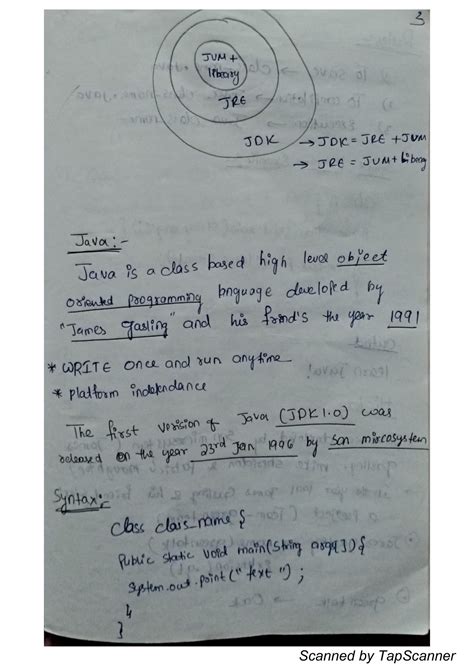 3
JVM +
library
JRE
JDK → JDK = JRE + JVM
→ JRE = JVM + library
Java :-
Java is a class based high level object
oriented programming language developed by
"James gasling" and his frind's the year 1991
* WRITE once and run anytime
* platform independance
The first version of Java (JDK 1.0) was
released on the year 23rd Jan 1996 by son miscosystem
Syntax:-
class class_name {
Public static void main(String args[]){
System.out.print("text");
}
}
Scanned by TapScanner